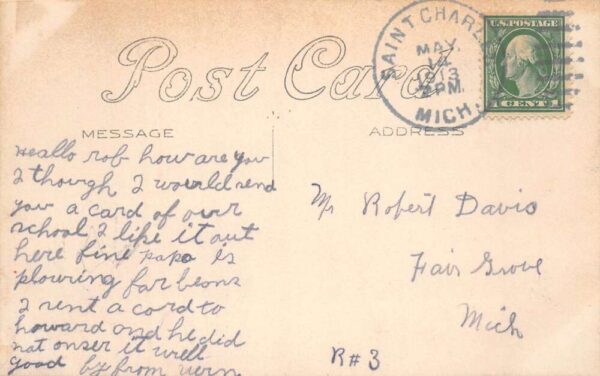 Post Card
SAINT CHARLES
MAY.
14
1913
2 PM.
MICH.
U.S. POSTAGE
1 CENT 1
MESSAGE
ADDRESS
Heallo rob how are you
I though I would send
you a card of our
school I like it out
here fine papa is
plouring far beans
I sent a card to
howard and he did
nat onser it well
good by from vern
Mr Robert Davis
Fair Grove
Mich
R#3